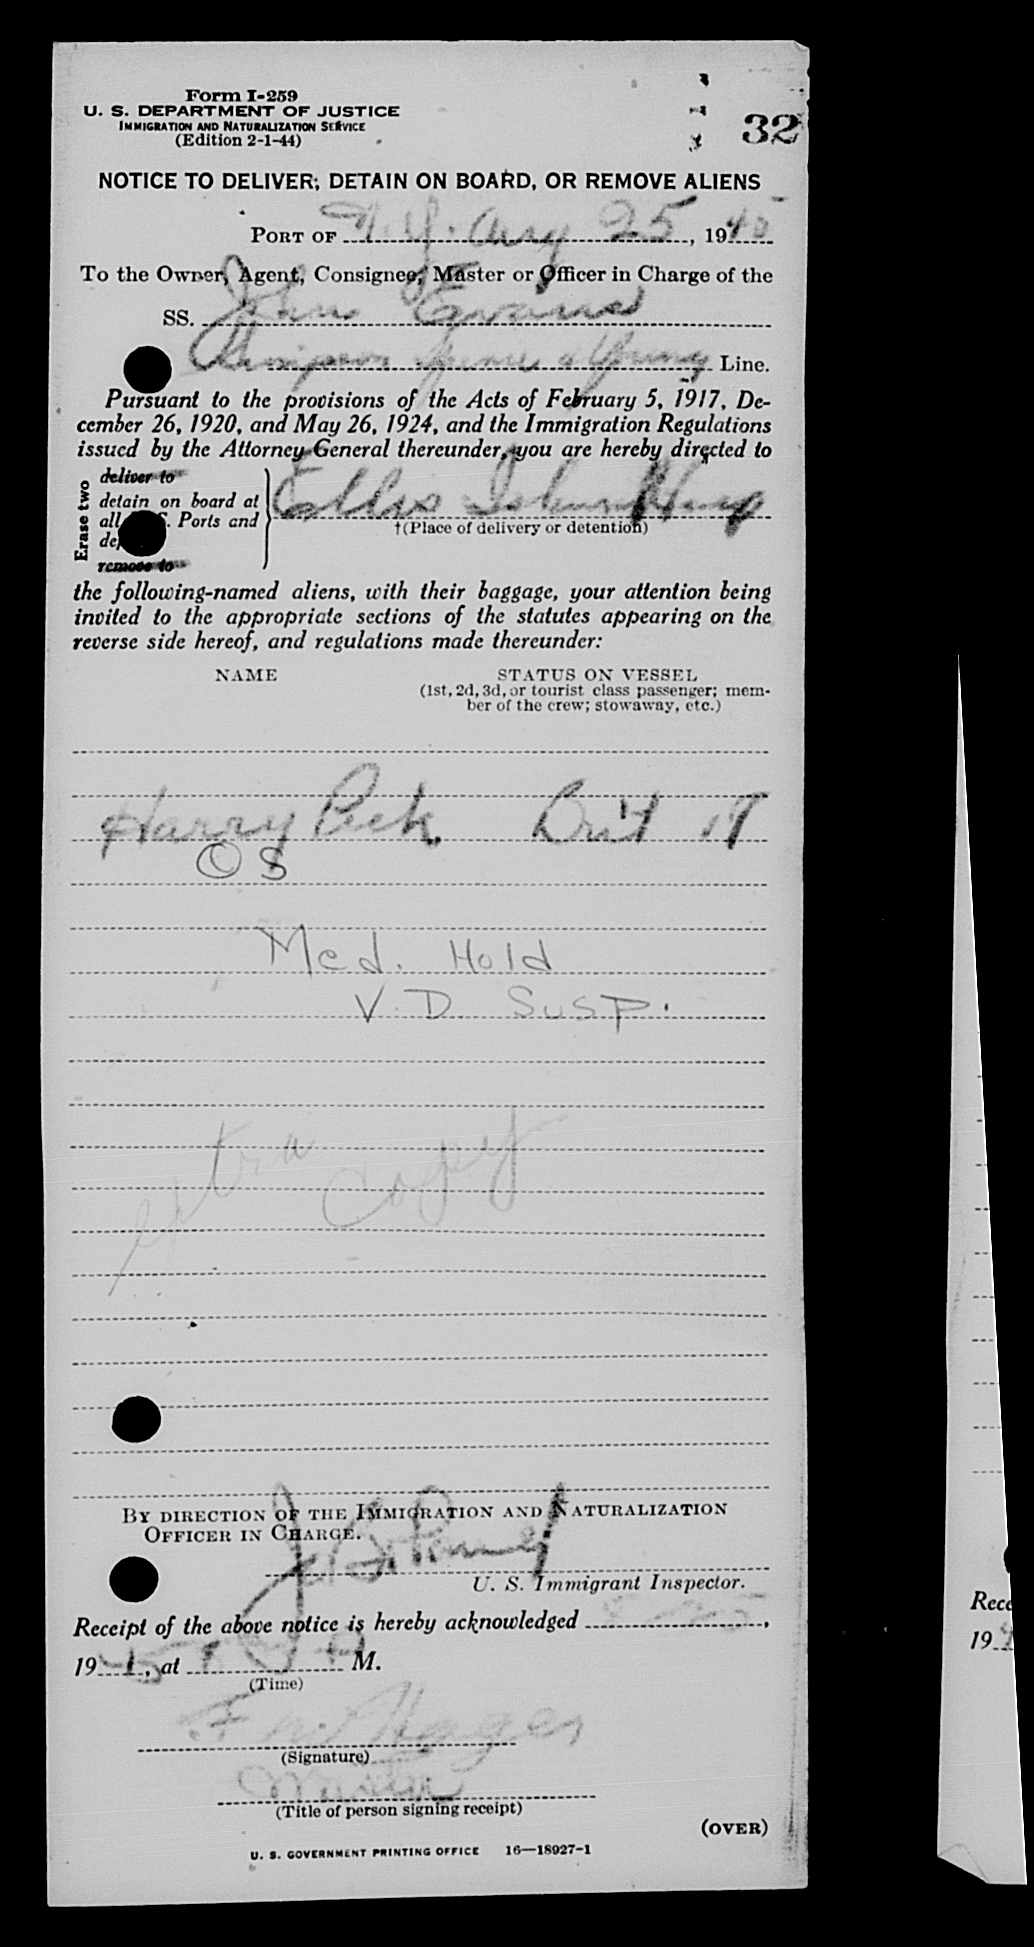 Form I-259
U. S. DEPARTMENT OF JUSTICE
IMMIGRATION AND NATURALIZATION SERVICE
(Edition 2-1-44)
32
NOTICE TO DELIVER, DETAIN ON BOARD, OR REMOVE ALIENS
PORT OF N.Y. Aug 25, 1945
To the Owner, Agent, Consignee, Master or Officer in Charge of the
SS. John Evans
Simpson Spence & Young Line.
Pursuant to the provisions of the Acts of February 5, 1917, De-
cember 26, 1920, and May 26, 1924, and the Immigration Regulations
issued by the Attorney General thereunder, you are hereby directed to
Erase two
deliver to
detain on board at
all Ports and
remove to
Ellis Island Hosp
†(Place of delivery or detention)
the following-named aliens, with their baggage, your attention being
invited to the appropriate sections of the statutes appearing on the
reverse side hereof, and regulations made thereunder:
NAME STATUS ON VESSEL
(1st, 2d, 3d, or tourist class passenger; mem-
ber of the crew; stowaway, etc.)
Harry Peck Brit 19
OS
Med. Hold
V.D. Susp.
extra copy
BY DIRECTION OF THE IMMIGRATION AND NATURALIZATION
OFFICER IN CHARGE.
U. S. Immigrant Inspector.
Receipt of the above notice is hereby acknowledged
1945, at M.
(Time)
(Signature)
Master
(Title of person signing receipt)
(OVER)
U. S. GOVERNMENT PRINTING OFFICE 16—18927-1
Rece
19